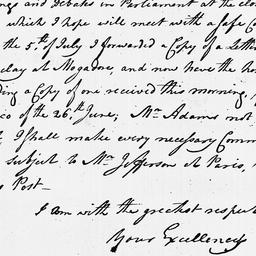 ngs and Debates in Parliament at the clo
which I hope will meet with a safe Co
the 5th of July I forwarded a Copy of a Lette
day at Mogadore and now have the hon
ding a Copy of one received this morning, f
co of the 26th June; Mr Adams not
I shall make every necessary Comm
subject to Mr Jefferson at Paris,
Post—
I am with the greatest respect
Your Excellency